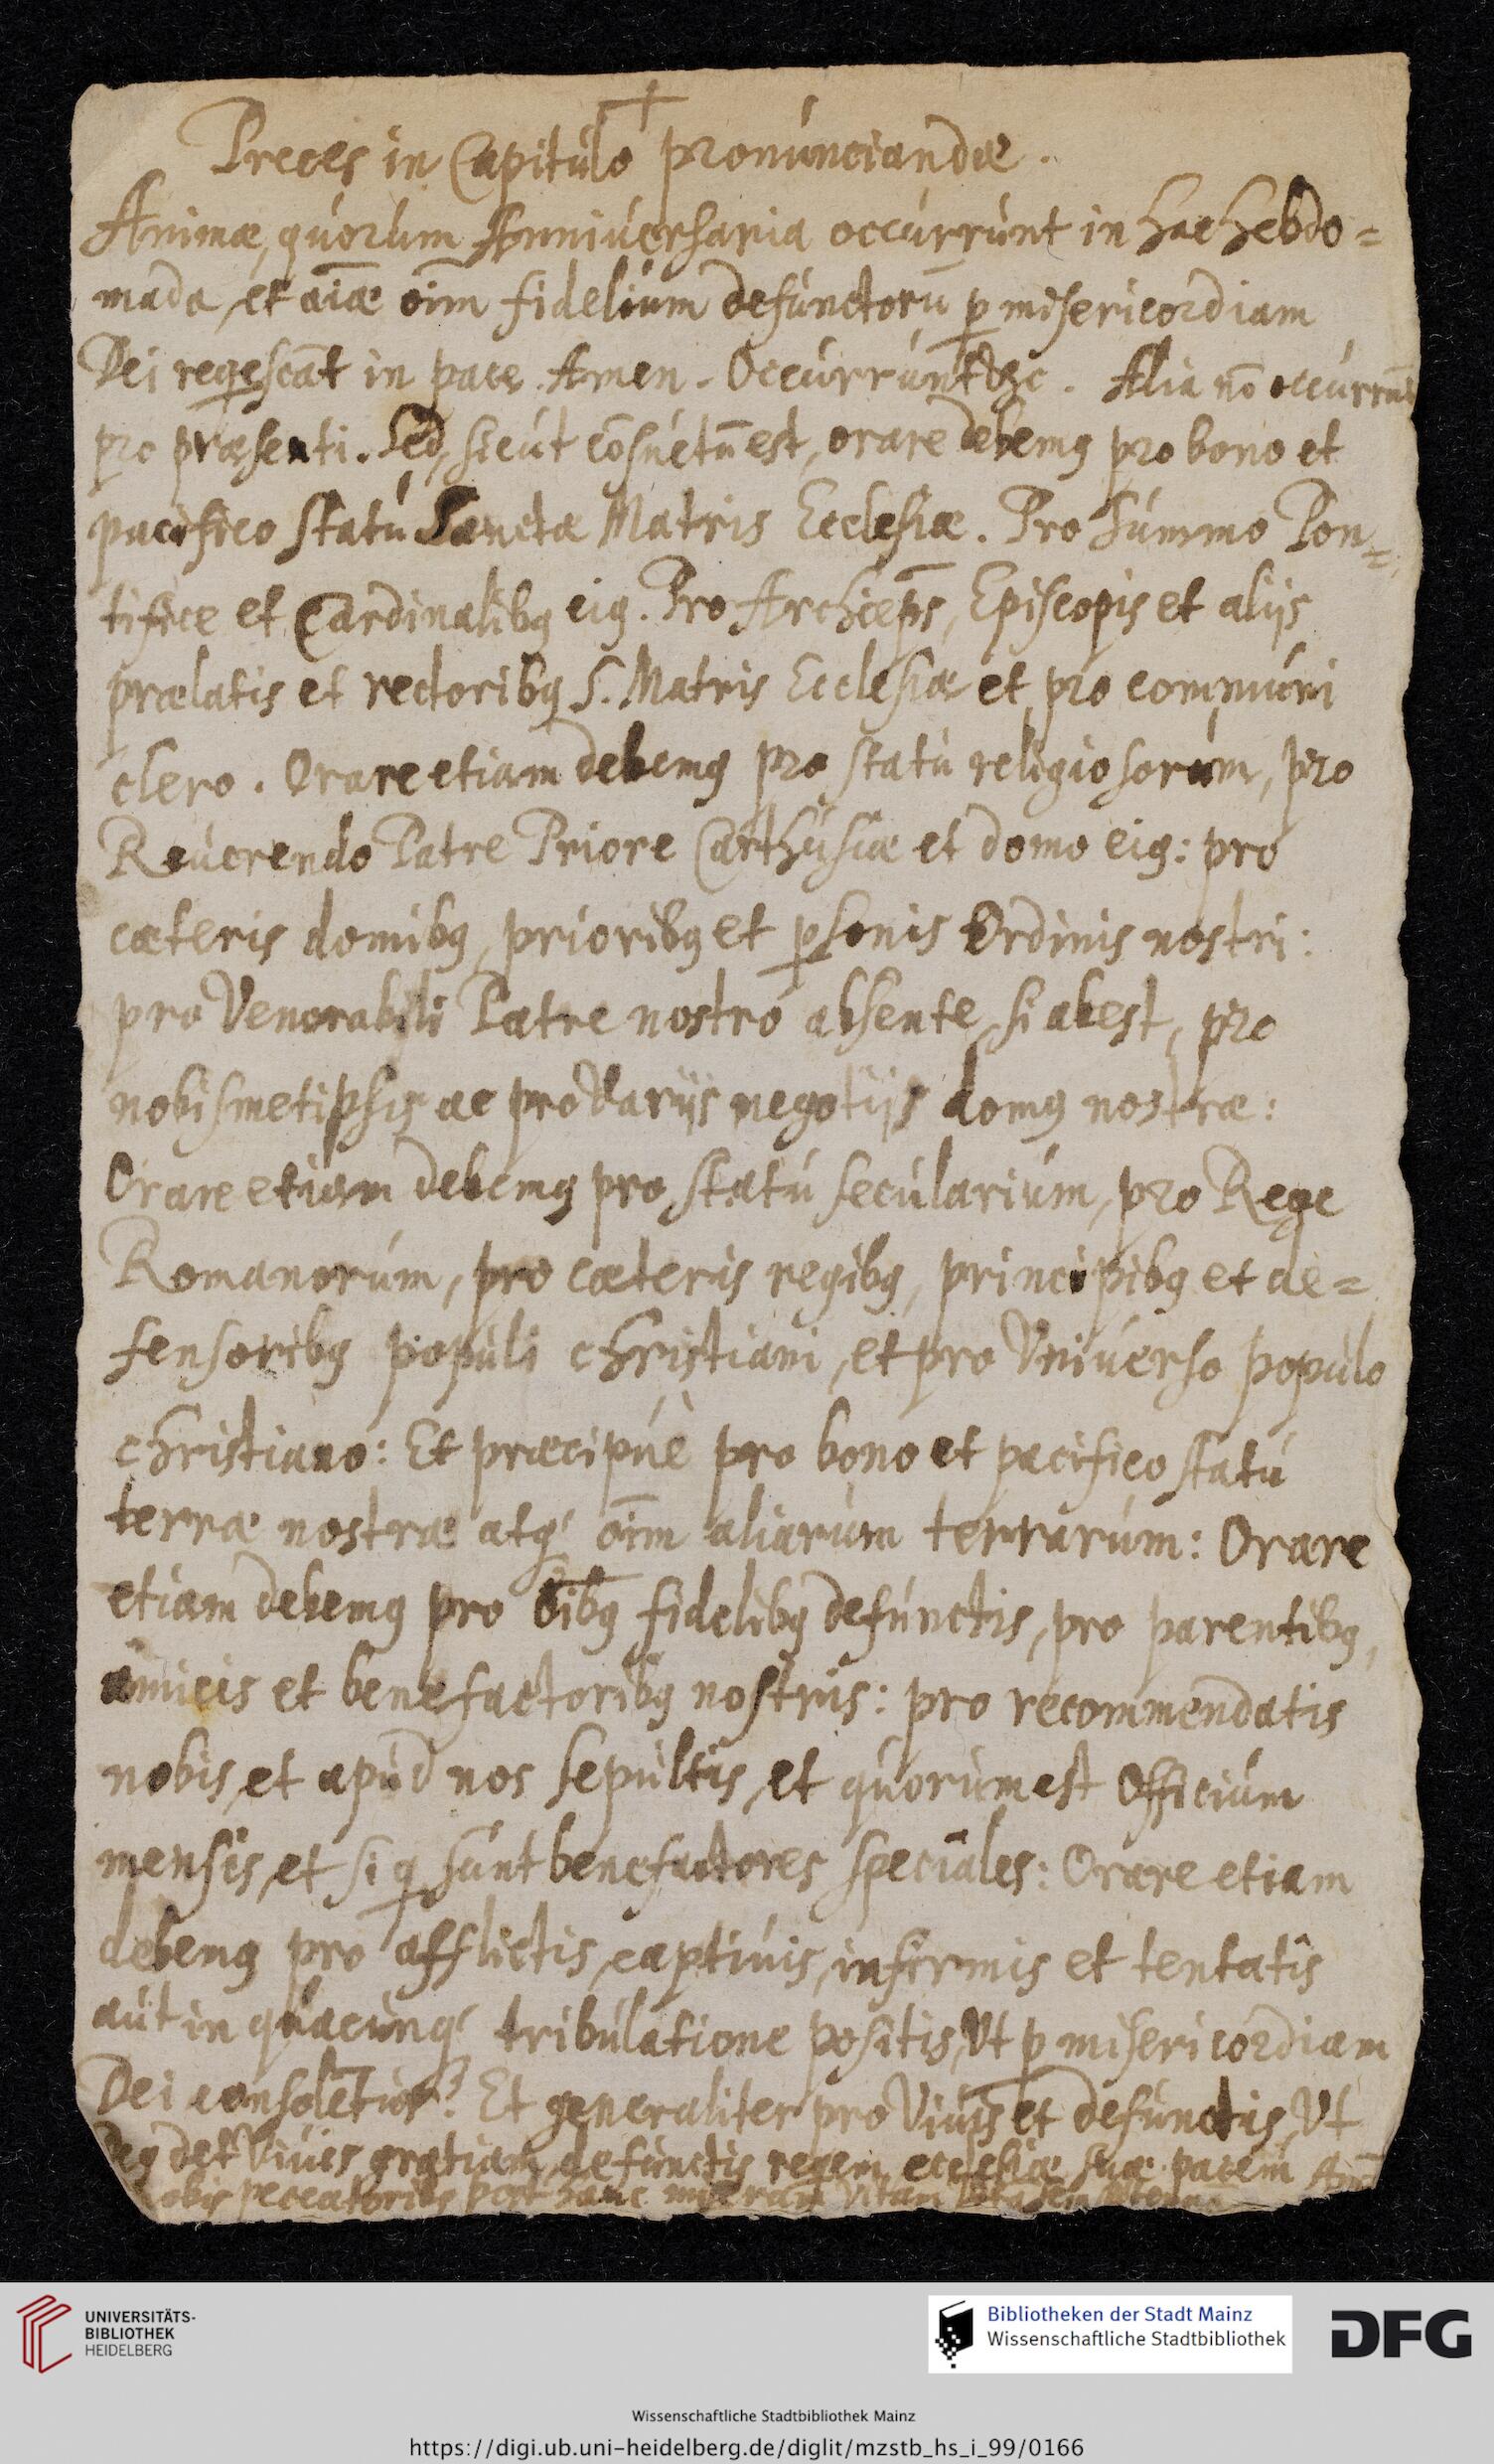 †
Preces in Capitulo pronunciandæ.
Animæ, quorum Anniversaria occurrunt in hac hebdo=
mada, et aīæ oīm fidelium defunctorū ꝑ misericordiam
Dei reqescāt in pace. Amen. Occurrunt &c. Alia nō occurrūt
pro præsenti. Sed, sicut cōsuetū est, orare debemꝰ pro bono et
pacifico statu Sanctæ Matris Ecclesiæ. Pro Summo Pon=
tifice et Cardinalibꝰ eiꝰ. Pro Archiep̄s, Episcopis et alijs
prælatis et rectoribꝰ S. Matris Ecclesiæ et pro communi
clero. Orare etiam debemꝰ pro statu religiosorum, pro
Reuerendo Patre Priore Carthusiæ et domo eiꝰ: pro
cæteris domibꝰ, prioribꝰ et ꝑsonis Ordinis nostri:
pro Venerabili Patre nostro absente, si abest, pro
nobismetipsis ac pro varijs negotijs domꝰ nostræ:
Orare etiam debemꝰ pro statu secularium, pro Rege
Romanorum, pro cæteris regibꝰ, principibꝰ et de=
fensoribꝰ populi christiani, et pro Vniuerso populo
christiano: Et præcipuè pro bono et pacifico statu
terræ nostræ atq́ oīm aliarum terrarum: Orare
etiam debemꝰ pro oībꝰ fidelibꝰ defunctis, pro parentibꝰ,
amicis et benefactoribꝰ nostris: pro recommendatis
nobis, et apud nos sepultis, et quorum est Officium
mensis, et si q sunt benefactores speciales: Orare etiam
debemꝰ pro afflictis, captiuis, infirmis et tentatis
aut in quacunq́ tribulatione positis, Vt ꝑ misericordiam
Dei consolētur. Et generaliter pro Viuis et defunctis, Vt
Deꝰ det Viuis gratiam, defunctis reqem, ecclesiæ suæ pacem
nobis peccatoribꝰ post hanc miseram Vitam
UNIVERSITÄTS-
BIBLIOTHEK
HEIDELBERG
Bibliotheken der Stadt Mainz
Wissenschaftliche Stadtbibliothek
DFG
Wissenschaftliche Stadtbibliothek Mainz
https://digi.ub.uni-heidelberg.de/diglit/mzstb_hs_i_99/0166